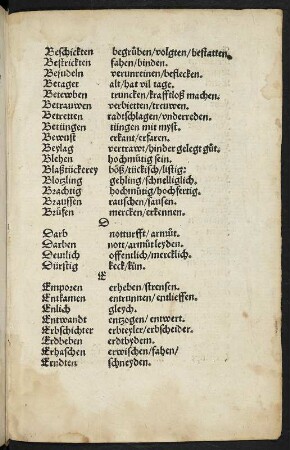 Beschickten begrüben/volgten/bestatten.
Bestrickten fahen/binden.
Besudeln verunreinen/beflecken.
Betaget alt/hat vil tage.
Beteweben truncken/krafftloß machen.
Betrauwen verbietten/treuwen.
Betretten radtschlagen/vnderreden.
Bettingen tüngen mit myst.
Bewust erkant/erfaren.
Beylag vertrawt/hinder gelegt gůt.
Blehen hochmütig sein.
Blaßtückerey böß/tückisch/listig:
Blotzling gehling/schnelliglich.
Brachtig hochmütig/hochfertig.
Braussen rauschen/sausen.
Brüfen mercken/erkennen.
D
Darb notturfft/armůt.
Darben nott/armůtleyden.
Deutlich offentlich/mercklich.
Dürstig keck/kün.
E
Emporen erheben/strensen.
Entkamen entrunnen/entlieffen.
Enlich gleych.
Entwandt entzogen/entwert.
Erbschichter erbteyler/erbscheider.
Erdbeben erdtbydem.
Erhaschen erwischen/fahen/
Erndten schneyden.